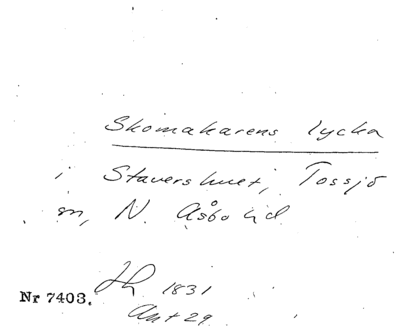 Skomakarens lycka
i Stavershuet, Tossjö
sn, N. Åsbo hd
Nr 7403. 1831
Ant 29